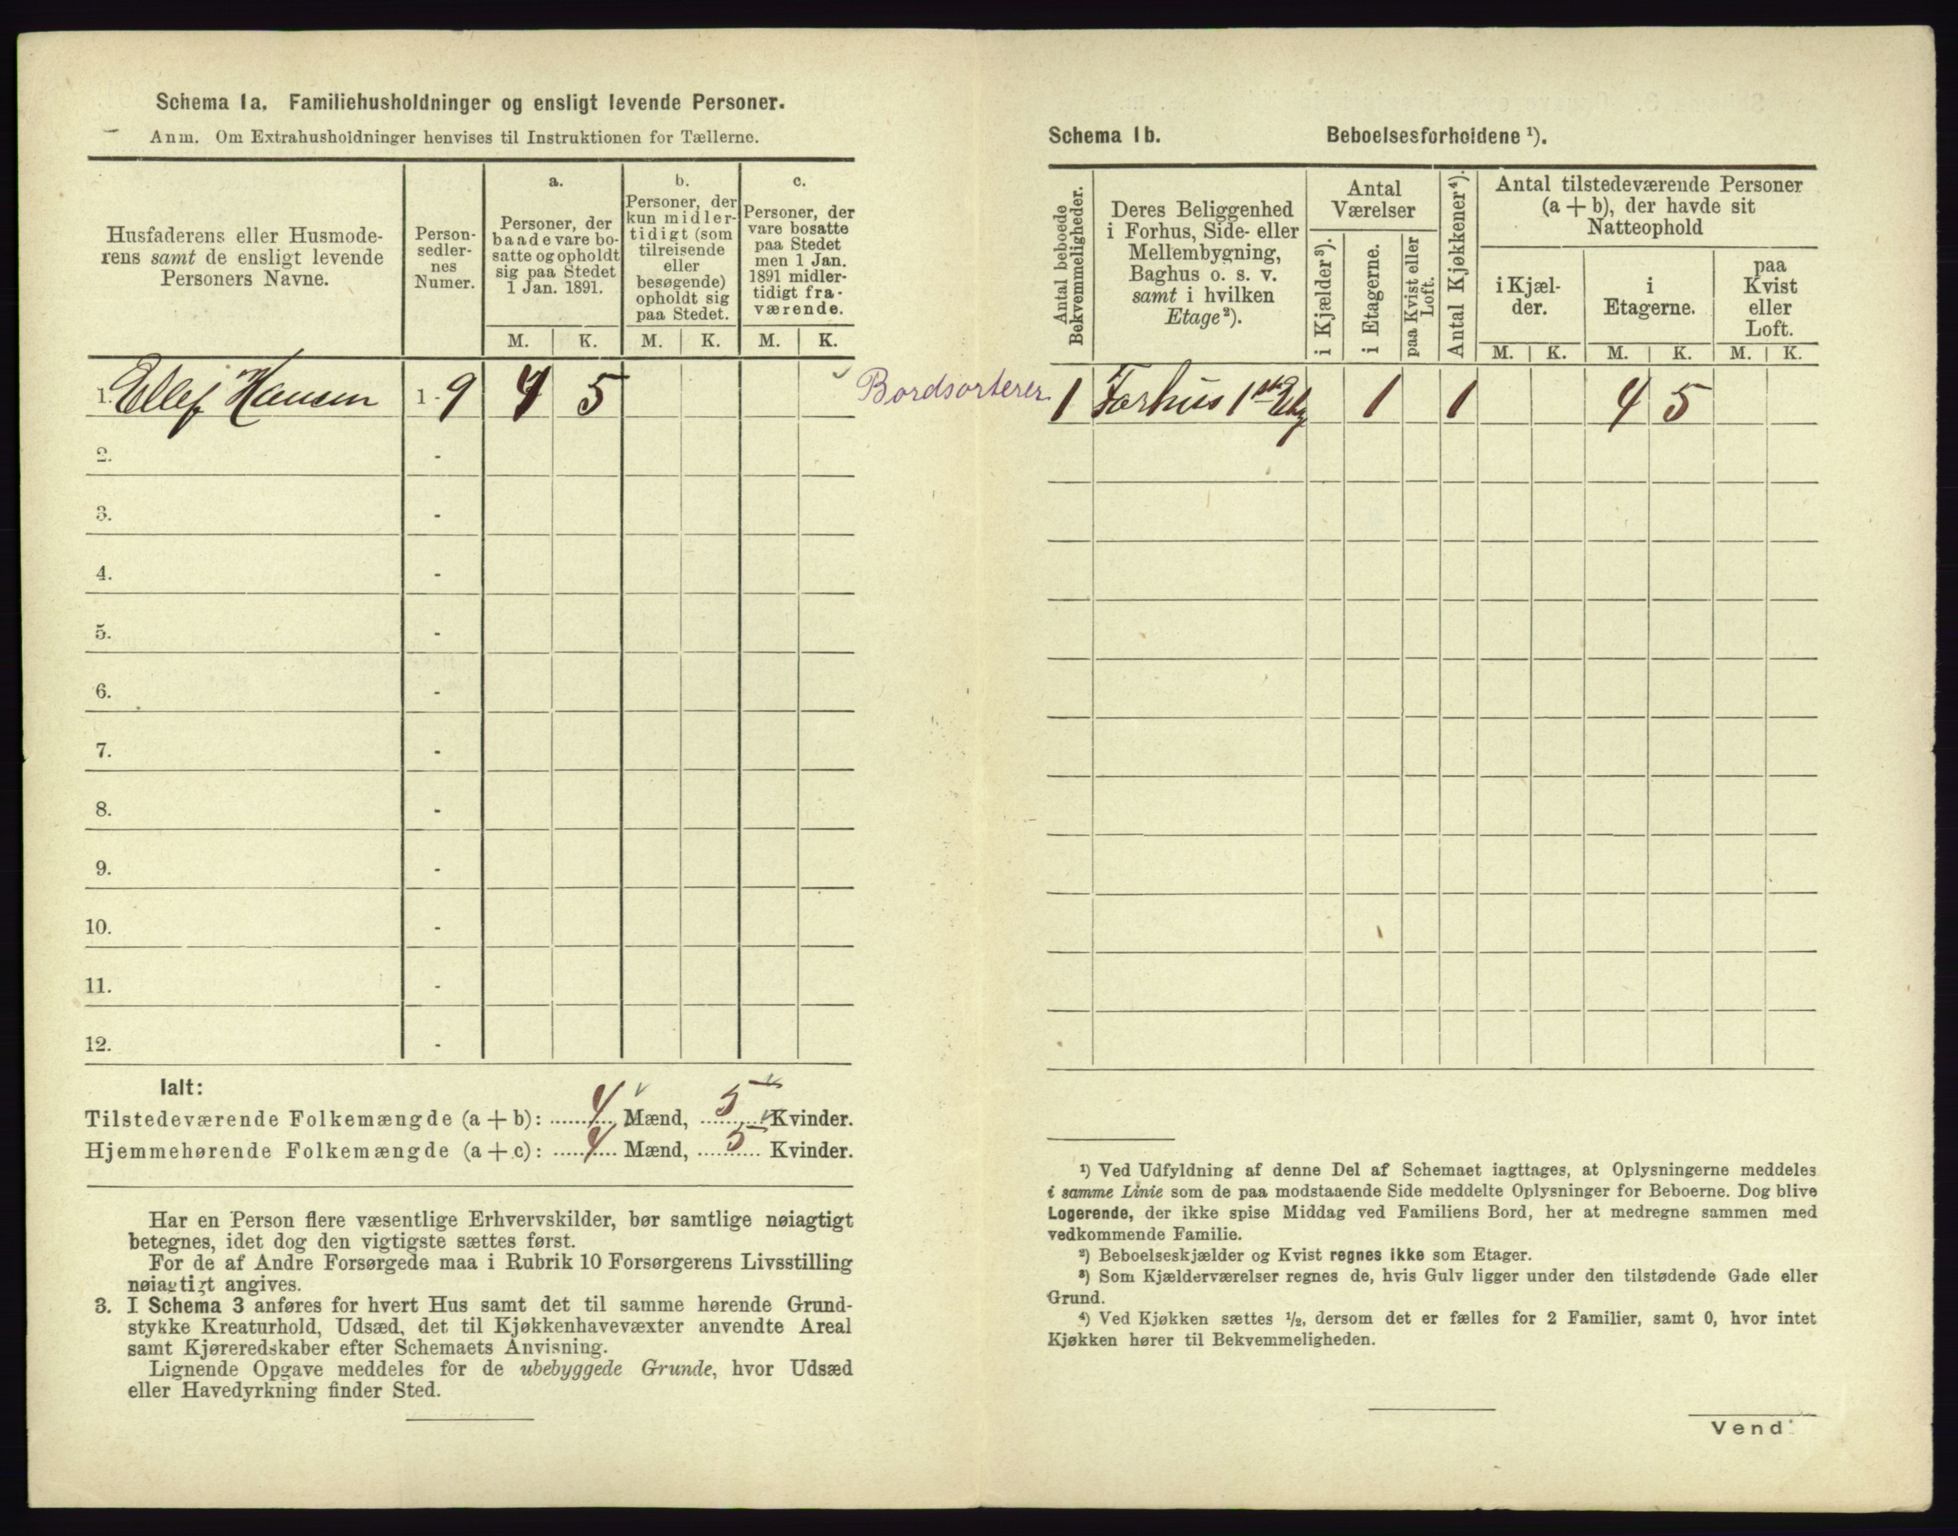 Schema 1a. Familiehusholdninger og ensligt levende Personer.
Anm. Om Extrahusholdninger henvises til Instruktionen for Tællerne.
Husfaderens eller Husmode-
rens samt de ensligt levende
Personers Navne.
Person-
sedler-
nes
Numer.
a.
Personer, der
baade vare bo-
satte og opholdt
sig paa Stedet
1 Jan. 1891.
b.
Personer, der
kun midler-
tidigt (som
tilreisende
eller
besøgende)
opholdt sig
paa Stedet.
c.
Personer, der
vare bosatte
paa Stedet
men 1 Jan.
1891 midler-
tidigt fra-
værende.
M. K. M. K. M. K.
1. Ellef Hansen 1 - 9 4 5
Bordsorterer
2. -
3. -
4. -
5. -
6. -
7. -
8. -
9. -
10. -
11. -
12. -
Ialt:
Tilstedeværende Folkemængde (a + b): 4 Mænd, 5 Kvinder.
Hjemmehørende Folkemængde (a + c): 4 Mænd, 5 Kvinder.
Har en Person flere væsentlige Erhvervskilder, bør samtlige nøiagtigt
betegnes, idet dog den vigtigste sættes først.
For de af Andre Forsørgede maa i Rubrik 10 Forsørgerens Livsstilling
nøiagtigt angives.
3. I Schema 3 anføres for hvert Hus samt det til samme hørende Grund-
stykke Kreaturhold, Udsæd, det til Kjøkkenhavevæxter anvendte Areal
samt Kjøreredskaber efter Schemaets Anvisning.
Lignende Opgave meddeles for de ubebyggede Grunde, hvor Udsæd
eller Havedyrkning finder Sted.
Schema 1b. Beboelsesforholdene ¹).
Antal beboede
Bekvemmeligheder.
Deres Beliggenhed
i Forhus, Side- eller
Mellembygning,
Baghus o. s. v.
samt i hvilken
Etage²).
Antal
Værelser
i Kjælder³).
i Etagerne.
paa Kvist eller
Loft.
Antal Kjøkkener⁴).
Antal tilstedeværende Personer
(a + b), der havde sit
Natteophold
i Kjæl-
der.
i
Etagerne.
paa
Kvist
eller
Loft.
M. K. M. K. M. K.
1 Forhus 1ste Etg 1 1 4 5
¹) Ved Udfyldning af denne Del af Schemaet iagttages, at Oplysningerne meddeles
i samme Linie som de paa modstaaende Side meddelte Oplysninger for Beboerne. Dog blive
Logerende, der ikke spise Middag ved Familiens Bord, her at medregne sammen med
vedkommende Familie.
²) Beboelseskjælder og Kvist regnes ikke som Etager.
³) Som Kjælderværelser regnes de, hvis Gulv ligger under den tilstødende Gade eller
Grund.
⁴) Ved Kjøkken sættes ½, dersom det er fælles for 2 Familier, samt 0, hvor intet
Kjøkken hører til Bekvemmeligheden.
Vend.